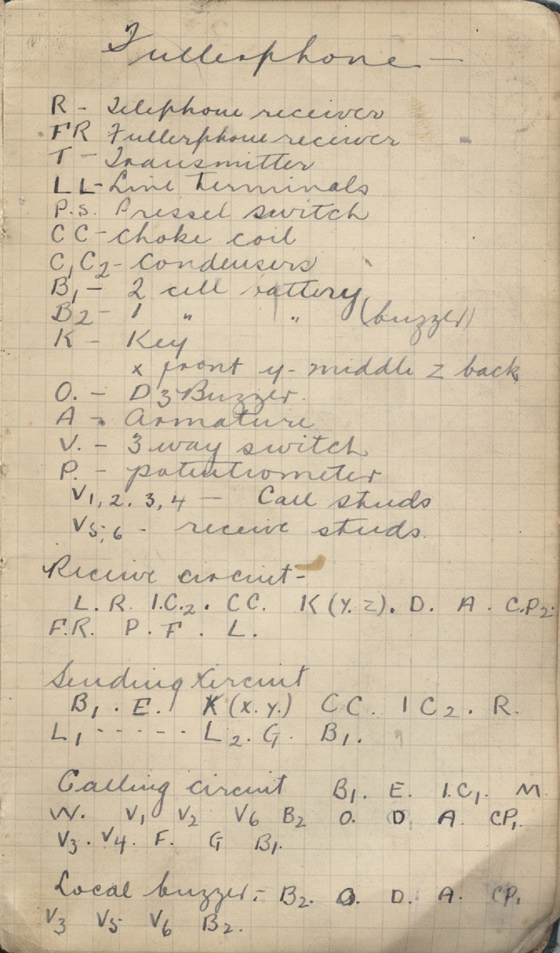 Fullerphone —
R - Telephone receiver
FR Fullerphone receiver
T - Transmitter
LL - Line Terminals
P.S. Pressel switch
CC - choke coil
C, C2 - Condensers
B1 - 2 cell battery
B2 - 1 " " (buzzer)
K - Key
x front y - middle z back
O. - D3 Buzzer.
A - Armature
V. - 3 way switch
P. - potentiometer
V1, 2. 3, 4 — Call studs
V5, 6 - receive studs.
Receive circuit -
L. R. I.C.2. CC. K (Y. Z). D. A. C.P2.
F.R. P. F. L.
Sending Circuit
B1. E. K (x. y.) CC. I C2. R.
L1 - - - - - L2. G. B1.
Calling circuit B1. E. I.C1. M.
W. V1 V2 V6 B2 O. D. A. CP1.
V3. V4. F. G B1.
Local buzzer, - B2. O. D. A. CP1
V3 V5 V6 B2.